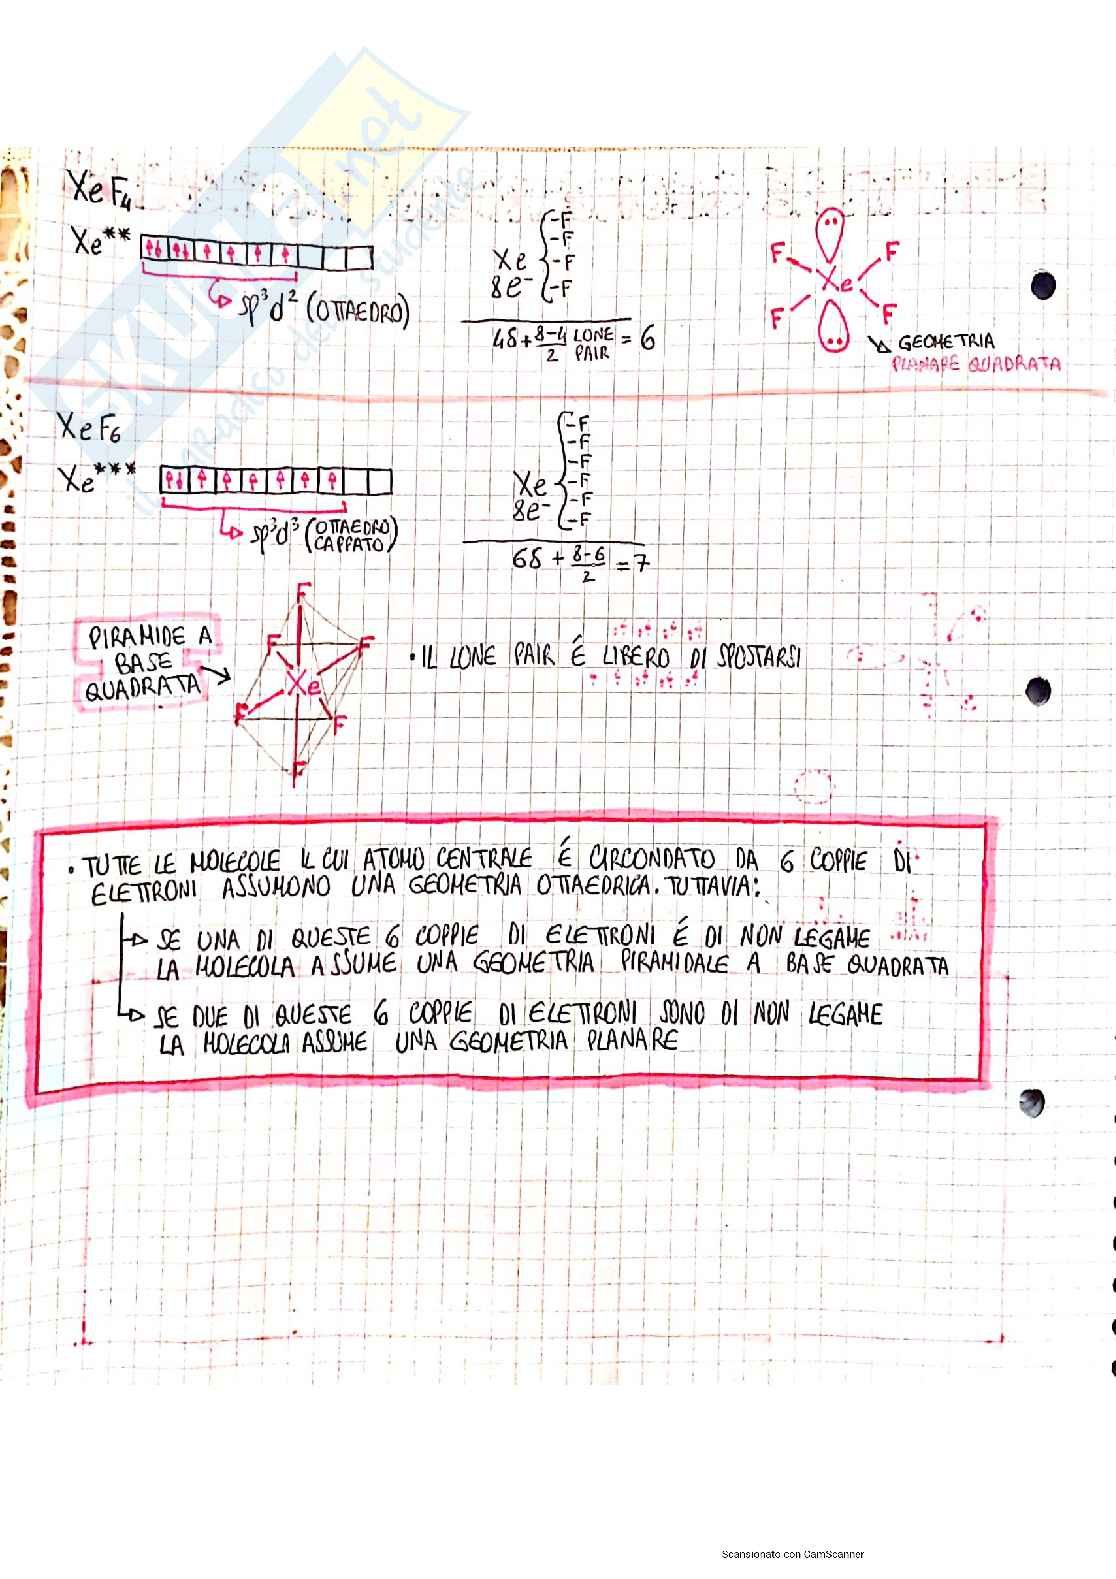 XeF4
Xe**
sp³d² (OTTAEDRO)
-F
-F
Xe -F
8e⁻ -F
4δ + 8-4/2 LONE PAIR = 6
F F
Xe
F F
GEOMETRIA
PLANARE QUADRATA
XeF6
Xe***
sp³d³ (OTTAEDRO
CAPPATO)
-F
-F
-F
Xe -F
8e⁻ -F
-F
6δ + 8-6/2 = 7
PIRAMIDE A
BASE
QUADRATA
F
F F
Xe
F F
F
• IL LONE PAIR É LIBERO DI SPOSTARSI
• TUTTE LE MOLECOLE IL CUI ATOMO CENTRALE É CIRCONDATO DA 6 COPPIE DI
ELETTRONI ASSUMONO UNA GEOMETRIA OTTAEDRICA. TUTTAVIA:
SE UNA DI QUESTE 6 COPPIE DI ELETTRONI É DI NON LEGAME
LA MOLECOLA ASSUME UNA GEOMETRIA PIRAMIDALE A BASE QUADRATA
SE DUE DI QUESTE 6 COPPIE DI ELETTRONI SONO DI NON LEGAME
LA MOLECOLA ASSUME UNA GEOMETRIA PLANARE
Scansionato con CamScanner